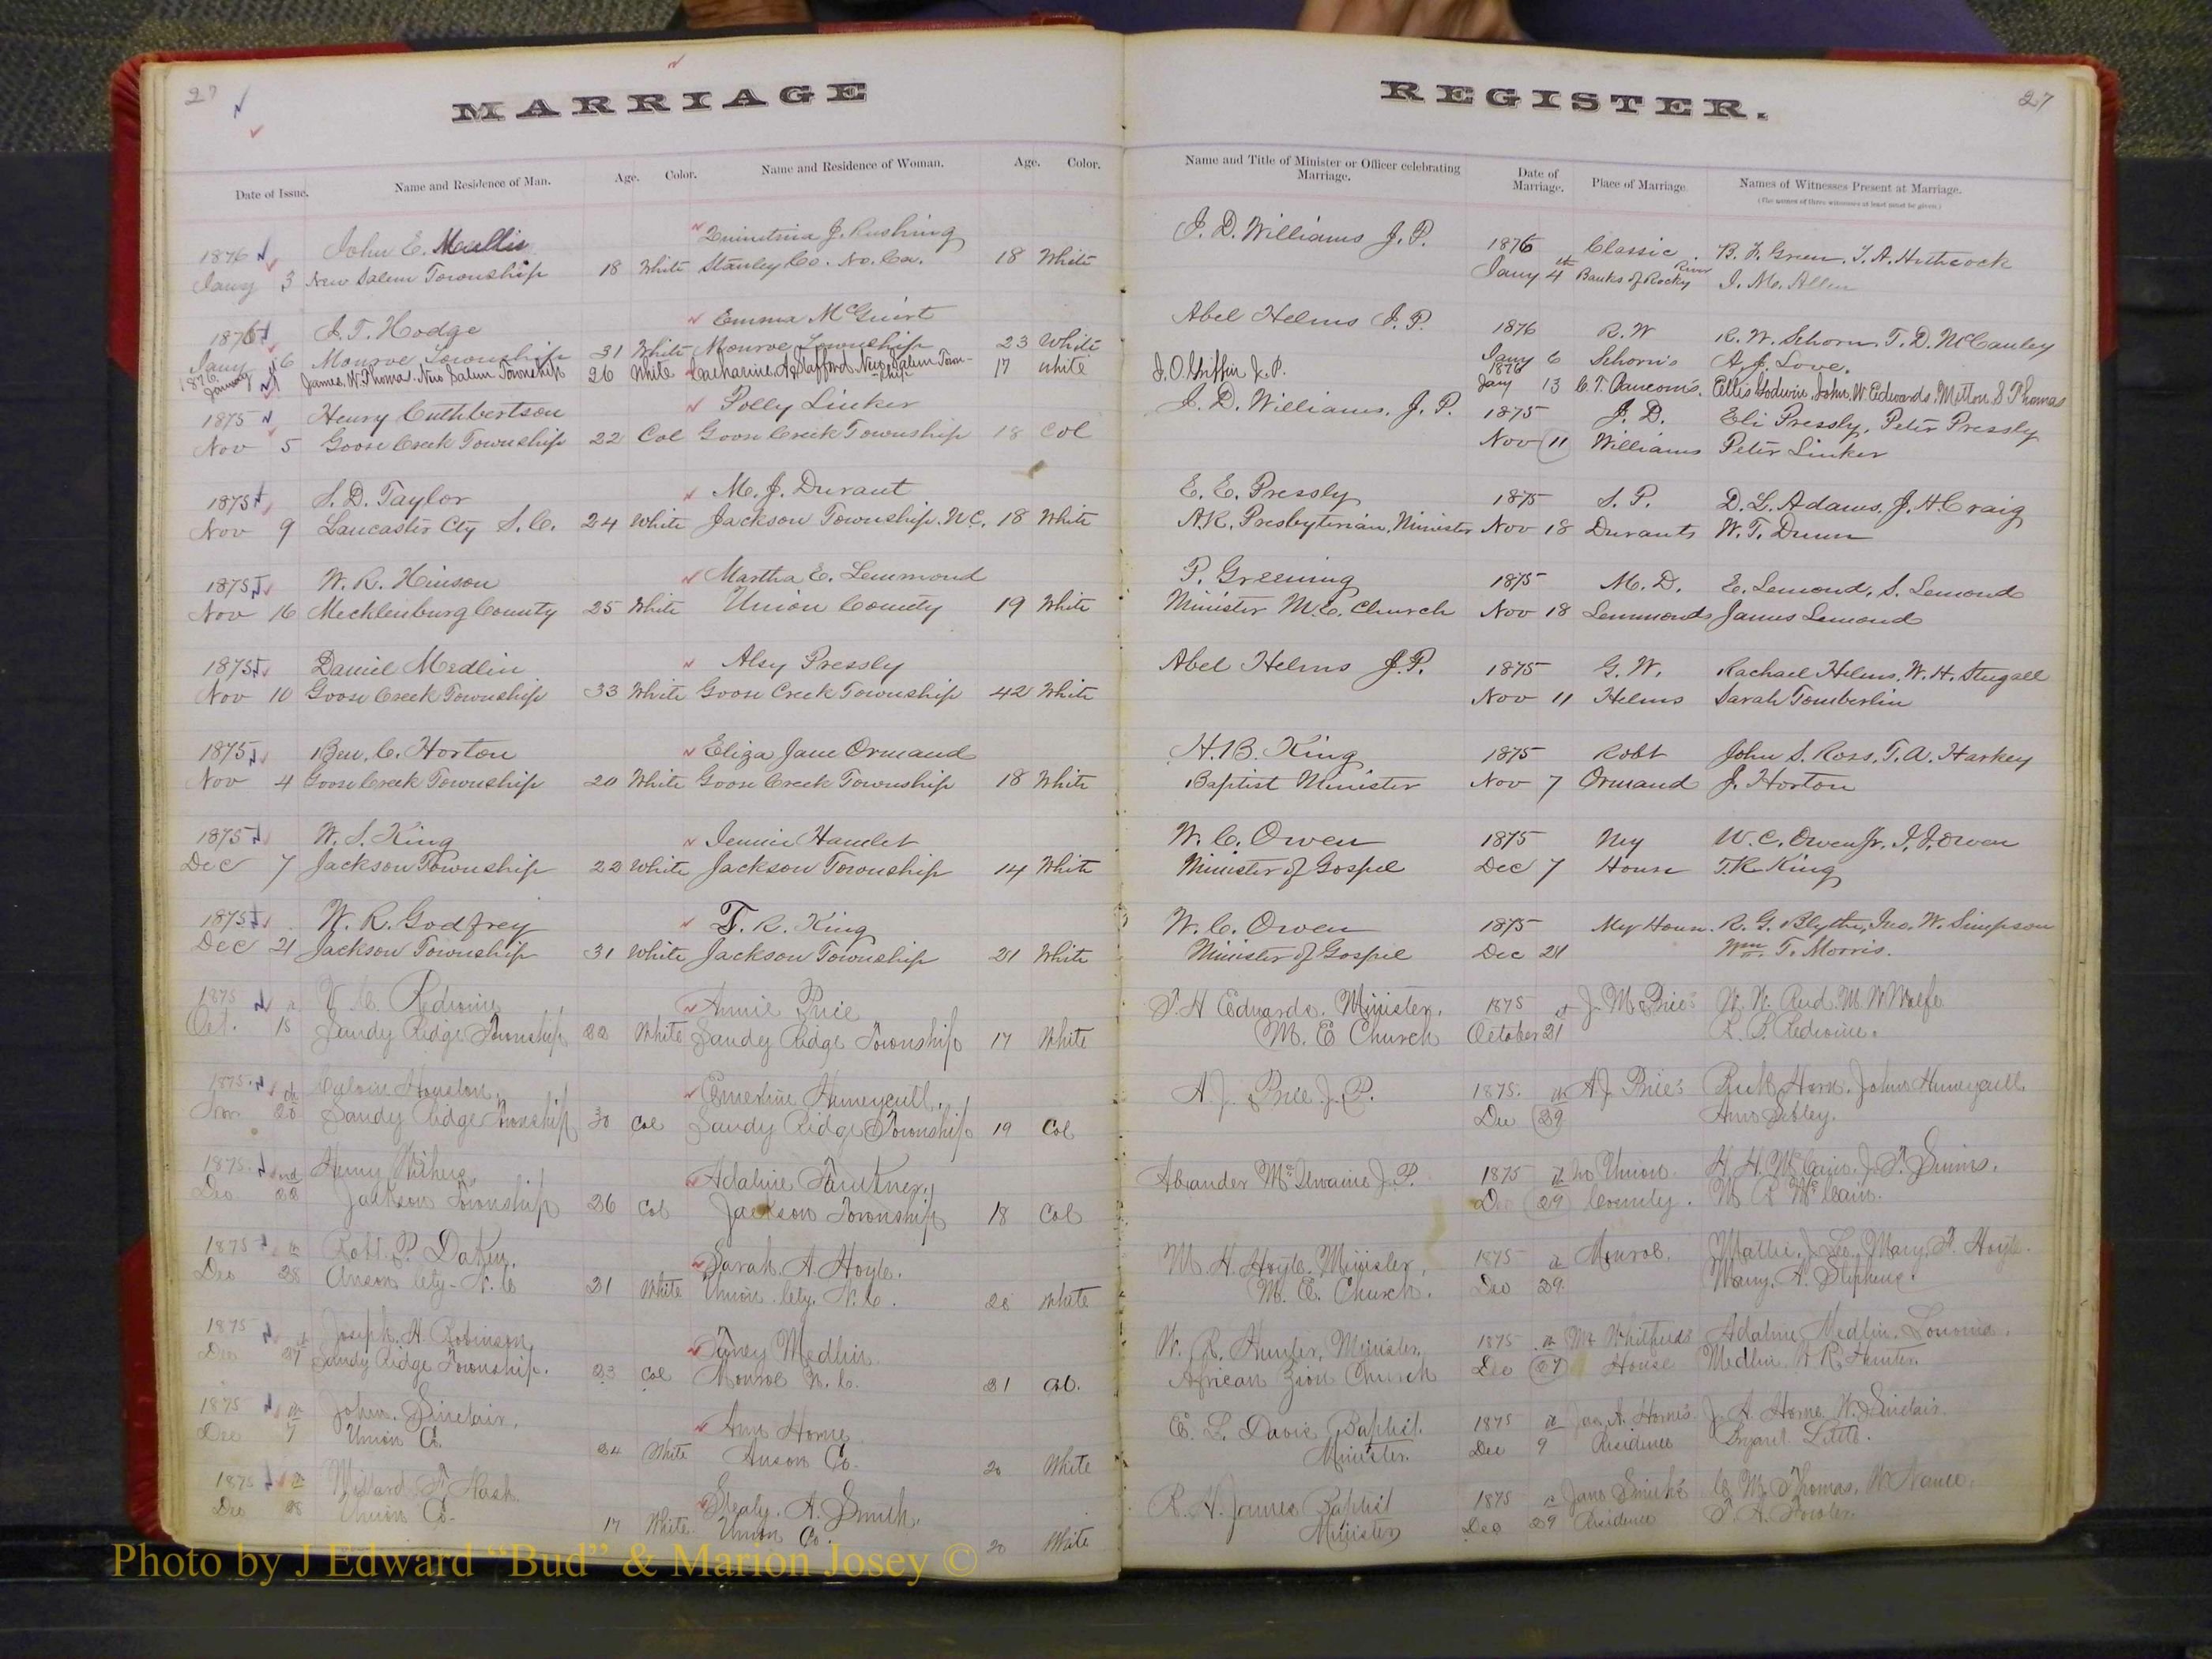 27
MARRIAGE
REGISTER.
27
Date of Issue. Name and Residence of Man. Age. Color. Name and Residence of Woman. Age. Color.
Name and Title of Minister or Officer celebrating Marriage. Date of Marriage. Place of Marriage. Names of Witnesses Present at Marriage.
(The names of three witnesses at least must be given.)
1876 John E. Mullis J. Rushing J. D. Williams J. P. 1876 Classic B. F. Green, T. A. Hithcock
Jany 3 New Salem Township 18 White Stanley Co. No. Ca. 18 White Jany 4th Banks of Rocky River J. M. Allen
1876 J. T. Hodge Emma McGuirt Abel Helms J. P. 1876 R. W R. W. Schorn, T. D. McCauley
Jany 6 Monroe Township 21 White Monroe Township 23 White Jany 6 Schorn's A. J. Love.
1876 January James W. Thomas New Salem Township 26 White Catharine A. Stafford New Salem Township 17 white J. O. Griffin J. P. 1876 Jany 13 C. T. Baucom's. Ellis Godwin, John W. Edwards, Milton S Thomas
1875 Henry Cuthbertson Polly Linker J. D. Williams, J. P. 1875 J. D. Eli Pressly, Peter Pressly
Nov 5 Goose Creek Township 22 Col Goose Creek Township 18 Col Nov 11 Williams Peter Linker
1875 S. D. Taylor M. J. Durant E. E. Pressly 1875 S. P. D. L. Adams, J. H. Craig
Nov 9 Lancaster Cty S. C. 24 White Jackson Township, N.C. 18 White A.R. Presbyterian, Minister Nov 18 Durants W. T. Dunn
1875 W. R. Hinson Martha E. Lemmond P. Greening 1875 M. D. E. Lemond, S. Lemond
Nov 16 Mecklenburg County 25 White Union County 19 White Minister M. E. Church Nov 18 Lemmonds James Lemond
1875 Daniel Medlin Alsy Pressly Abel Helms J. P. 1875 G. W. Rachael Helms, W. H. Stegall
Nov 10 Goose Creek Township 33 White Goose Creek Township 42 White Nov 11 Helms Sarah Tomberlin
1875 Ben. C. Horton Eliza Jane Ormand H. B. King 1875 Robt John S. Ross, T. A. Harkey
Nov 4 Goose Creek Township 20 White Goose Creek Township 18 White Baptist Minister Nov 7 Ormand J. Horton
1875 W. S. King Jennie Hamlet W. C. Owen 1875 My W. C. Owen Jr. Owen
Dec 7 Jackson Township 22 White Jackson Township 14 White Minister of Gospel Dec 7 House T. R. King
1875 W. R. Godfrey T. R. King W. C. Owen 1875 My House. R. G. Blythe, Jno. W. Simpson
Dec 21 Jackson Township 31 White Jackson Township 21 White Minister of Gospel Dec 21 Wm. T. Morris.
1875 Redwine Annie Price Edwards, Minister, 1875 J. M. Price's W. W. M. W Wolfe
Oct. 18 Sandy Ridge Township 22 White Sandy Ridge Township 17 White M. E Church October 21st Redwine.
1875 Calvin Houston, Emerline Huneycutt, A. J. Price J. P. 1875. A J Price's Horn, John Huneycutt
20th Sandy Ridge Township 30 Col Sandy Ridge Township 19 Col Dec 29th Sibley.
1875. Henry Adaline Faulkner, McIlwaine J. P. 1875 In Union H. H. McCain, J. T. Simms.
Dec 22nd Jackson Township 26 Col Jackson Township 18 Col Dec 29th County. McCain.
1875 Robt. P. Daken, Sarah A. Hoyle. M. H. Hoyle, Minister, 1875 Monroe. Mattie J. Mary F. Hoyle.
Dec 28th Anson Cty. N. C 21 White Union Cty. N. C. White M. E. Church. Dec 29th Mary A. Stephens.
1875 Joseph H. Robinson, Medlin. W. R. Hunter, Minister, 1875 House Adaline Medlin,
Dec 27th Sandy Ridge Township. 23 Col Monroe N. C. 21 Col. African Zion Church Dec 27th Medlin, W R Hunter.
1875 John Sinclair, Ann Horne E. L. Davis, Baptist 1875 Jas. A. Horne's J. A. Horne, W. Sinclair
Dec 7th Union Co 24 White Anson Co. 20 White Minister. Dec 9th Residence Little.
1875 Millard F. Nash A. Smith. R. H. James Baptist 1875 Jane Smith's C. M. Thomas, W. Nance,
Dec 28th Union Co. 17 White Union Co. 20 White Minister Dec 29th Residence
Photo by J Edward “Bud” & Marion Josey ©